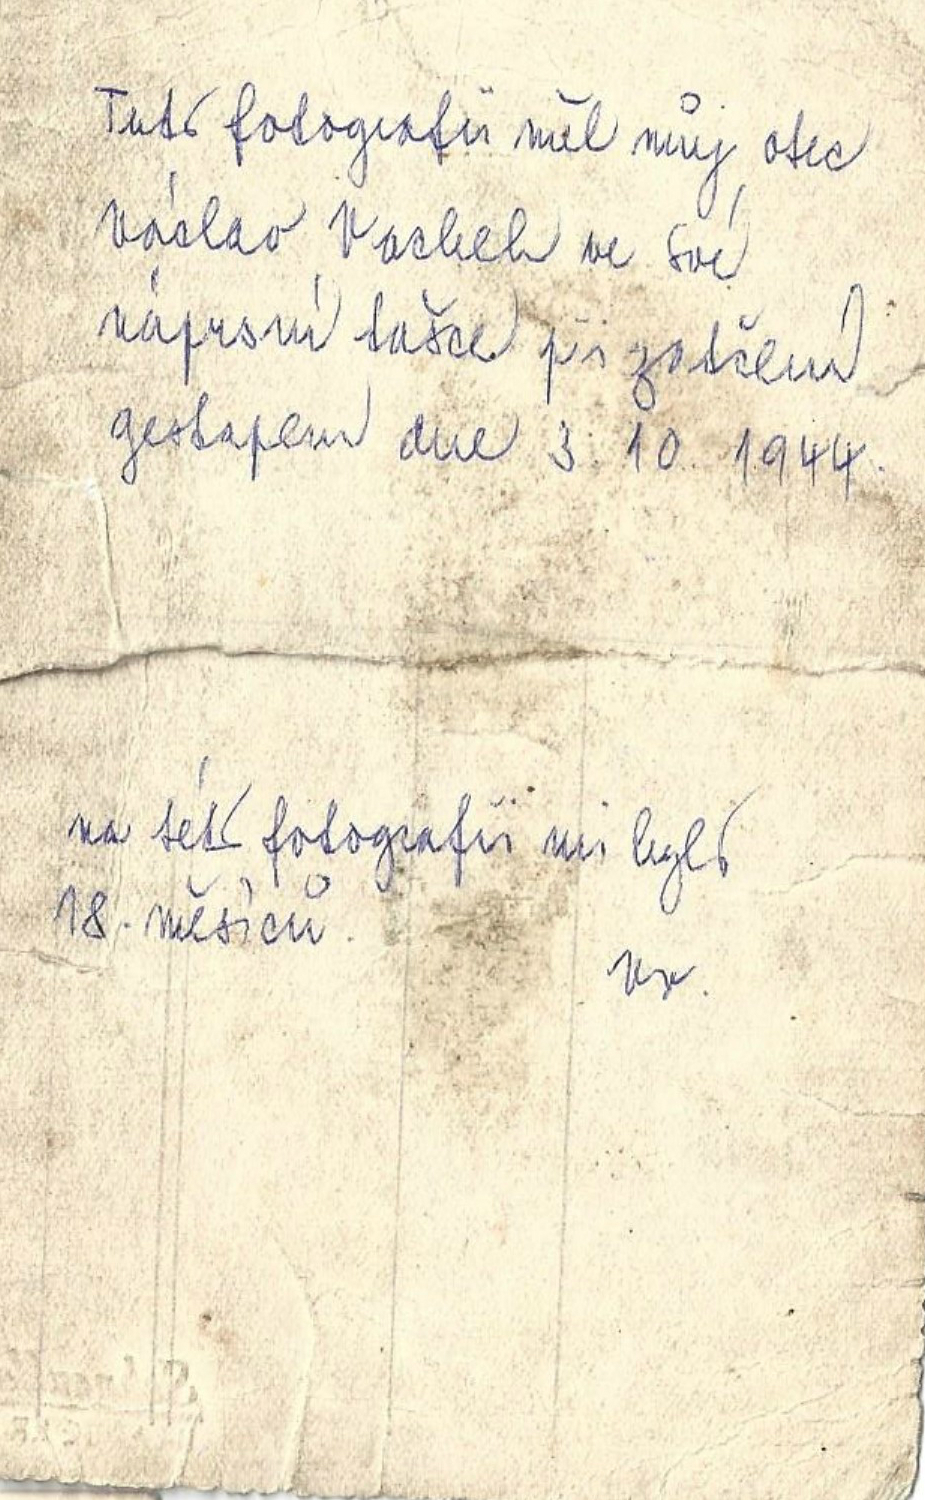 Tuto fotografii měl můj otec
Václav Vacheh ve své
náprsní tašce při zatčení
gestapem dne 3. 10. 1944.
na této fotografii mi bylo
18. měsíců.